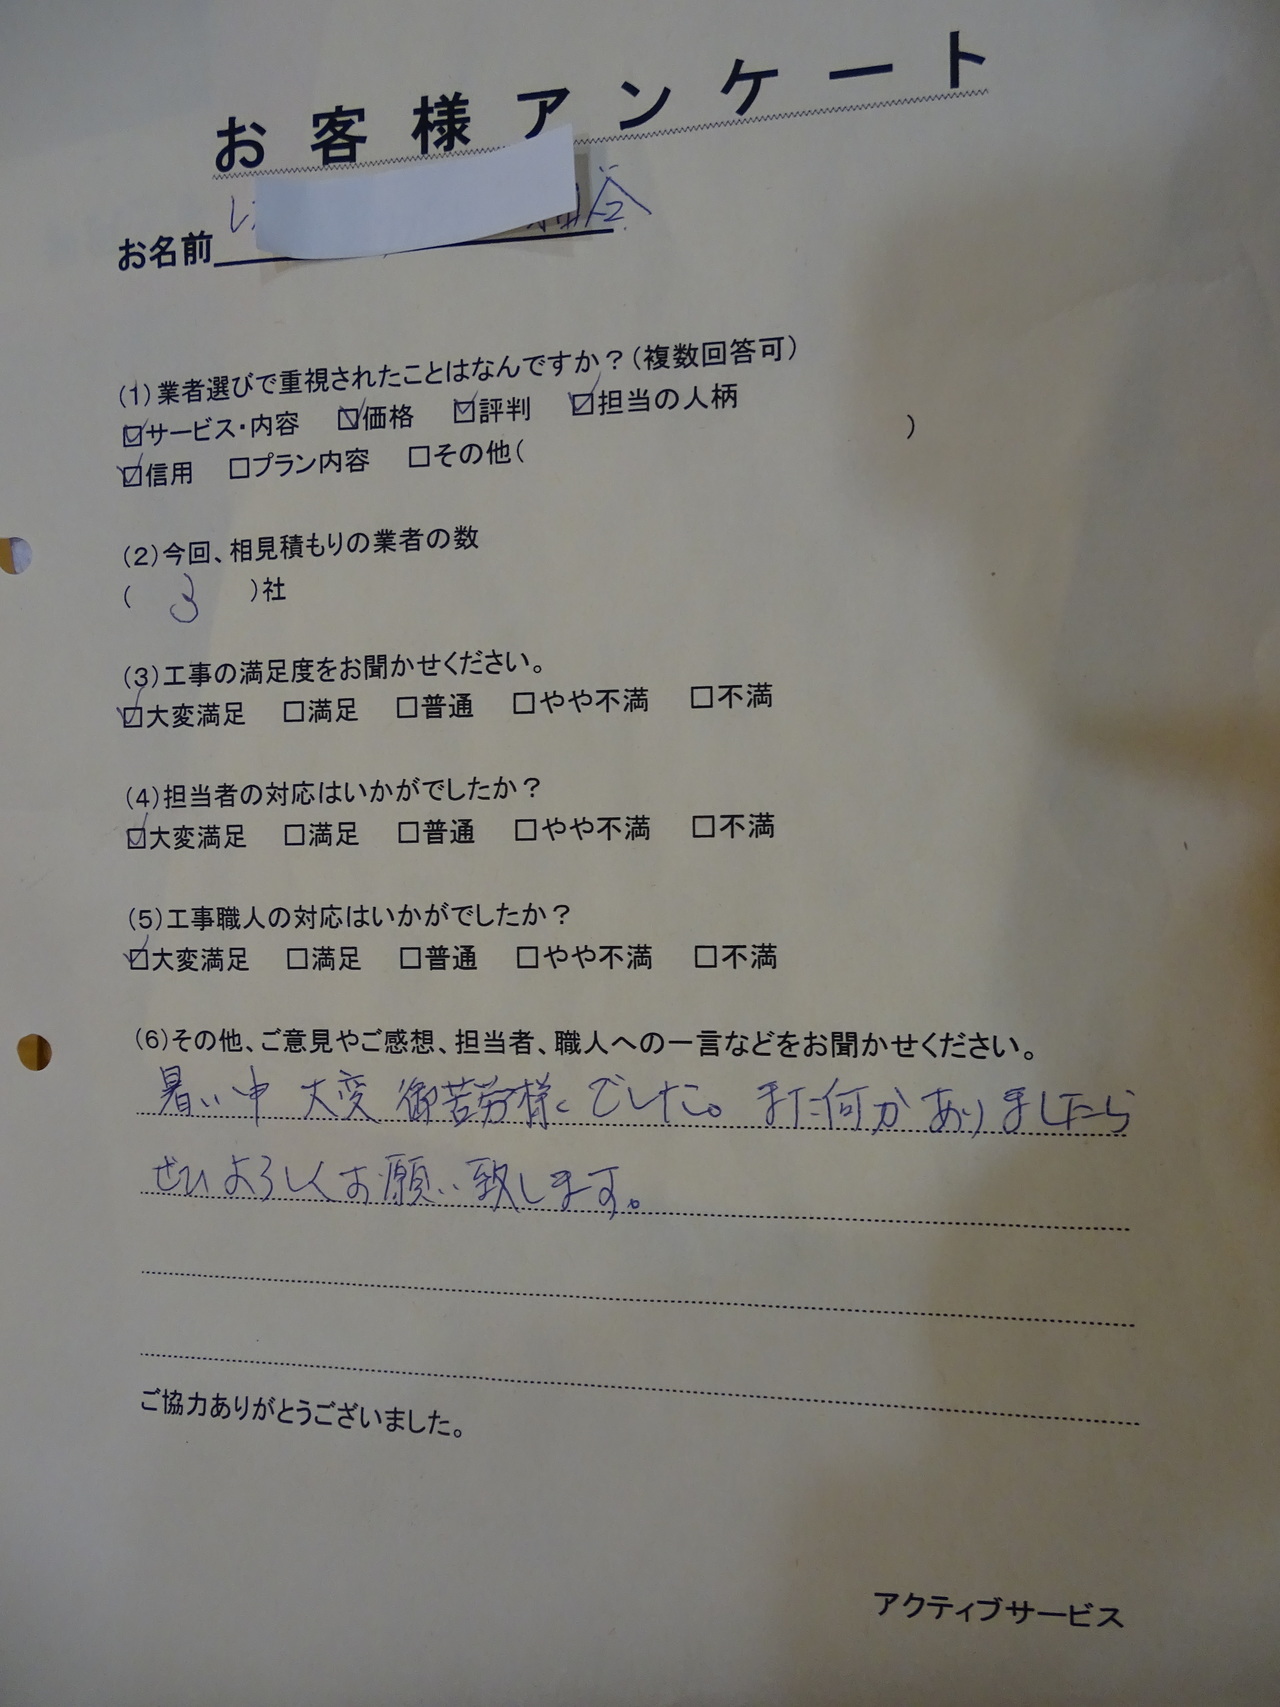 お客様アンケート
お名前 谷
(1)業者選びで重視されたことはなんですか？(複数回答可)
☑サービス・内容 ☑価格 ☑評判 ☑担当の人柄
☑信用 □プラン内容 □その他( )
(2)今回、相見積もりの業者の数
( 3 )社
(3)工事の満足度をお聞かせください。
☑大変満足 □満足 □普通 □やや不満 □不満
(4)担当者の対応はいかがでしたか？
☑大変満足 □満足 □普通 □やや不満 □不満
(5)工事職人の対応はいかがでしたか？
☑大変満足 □満足 □普通 □やや不満 □不満
(6)その他、ご意見やご感想、担当者、職人への一言などをお聞かせください。
暑い中 大変 御苦労様でした。また何かありましたら
ぜひよろしくお願い致します。
ご協力ありがとうございました。
アクティブサービス